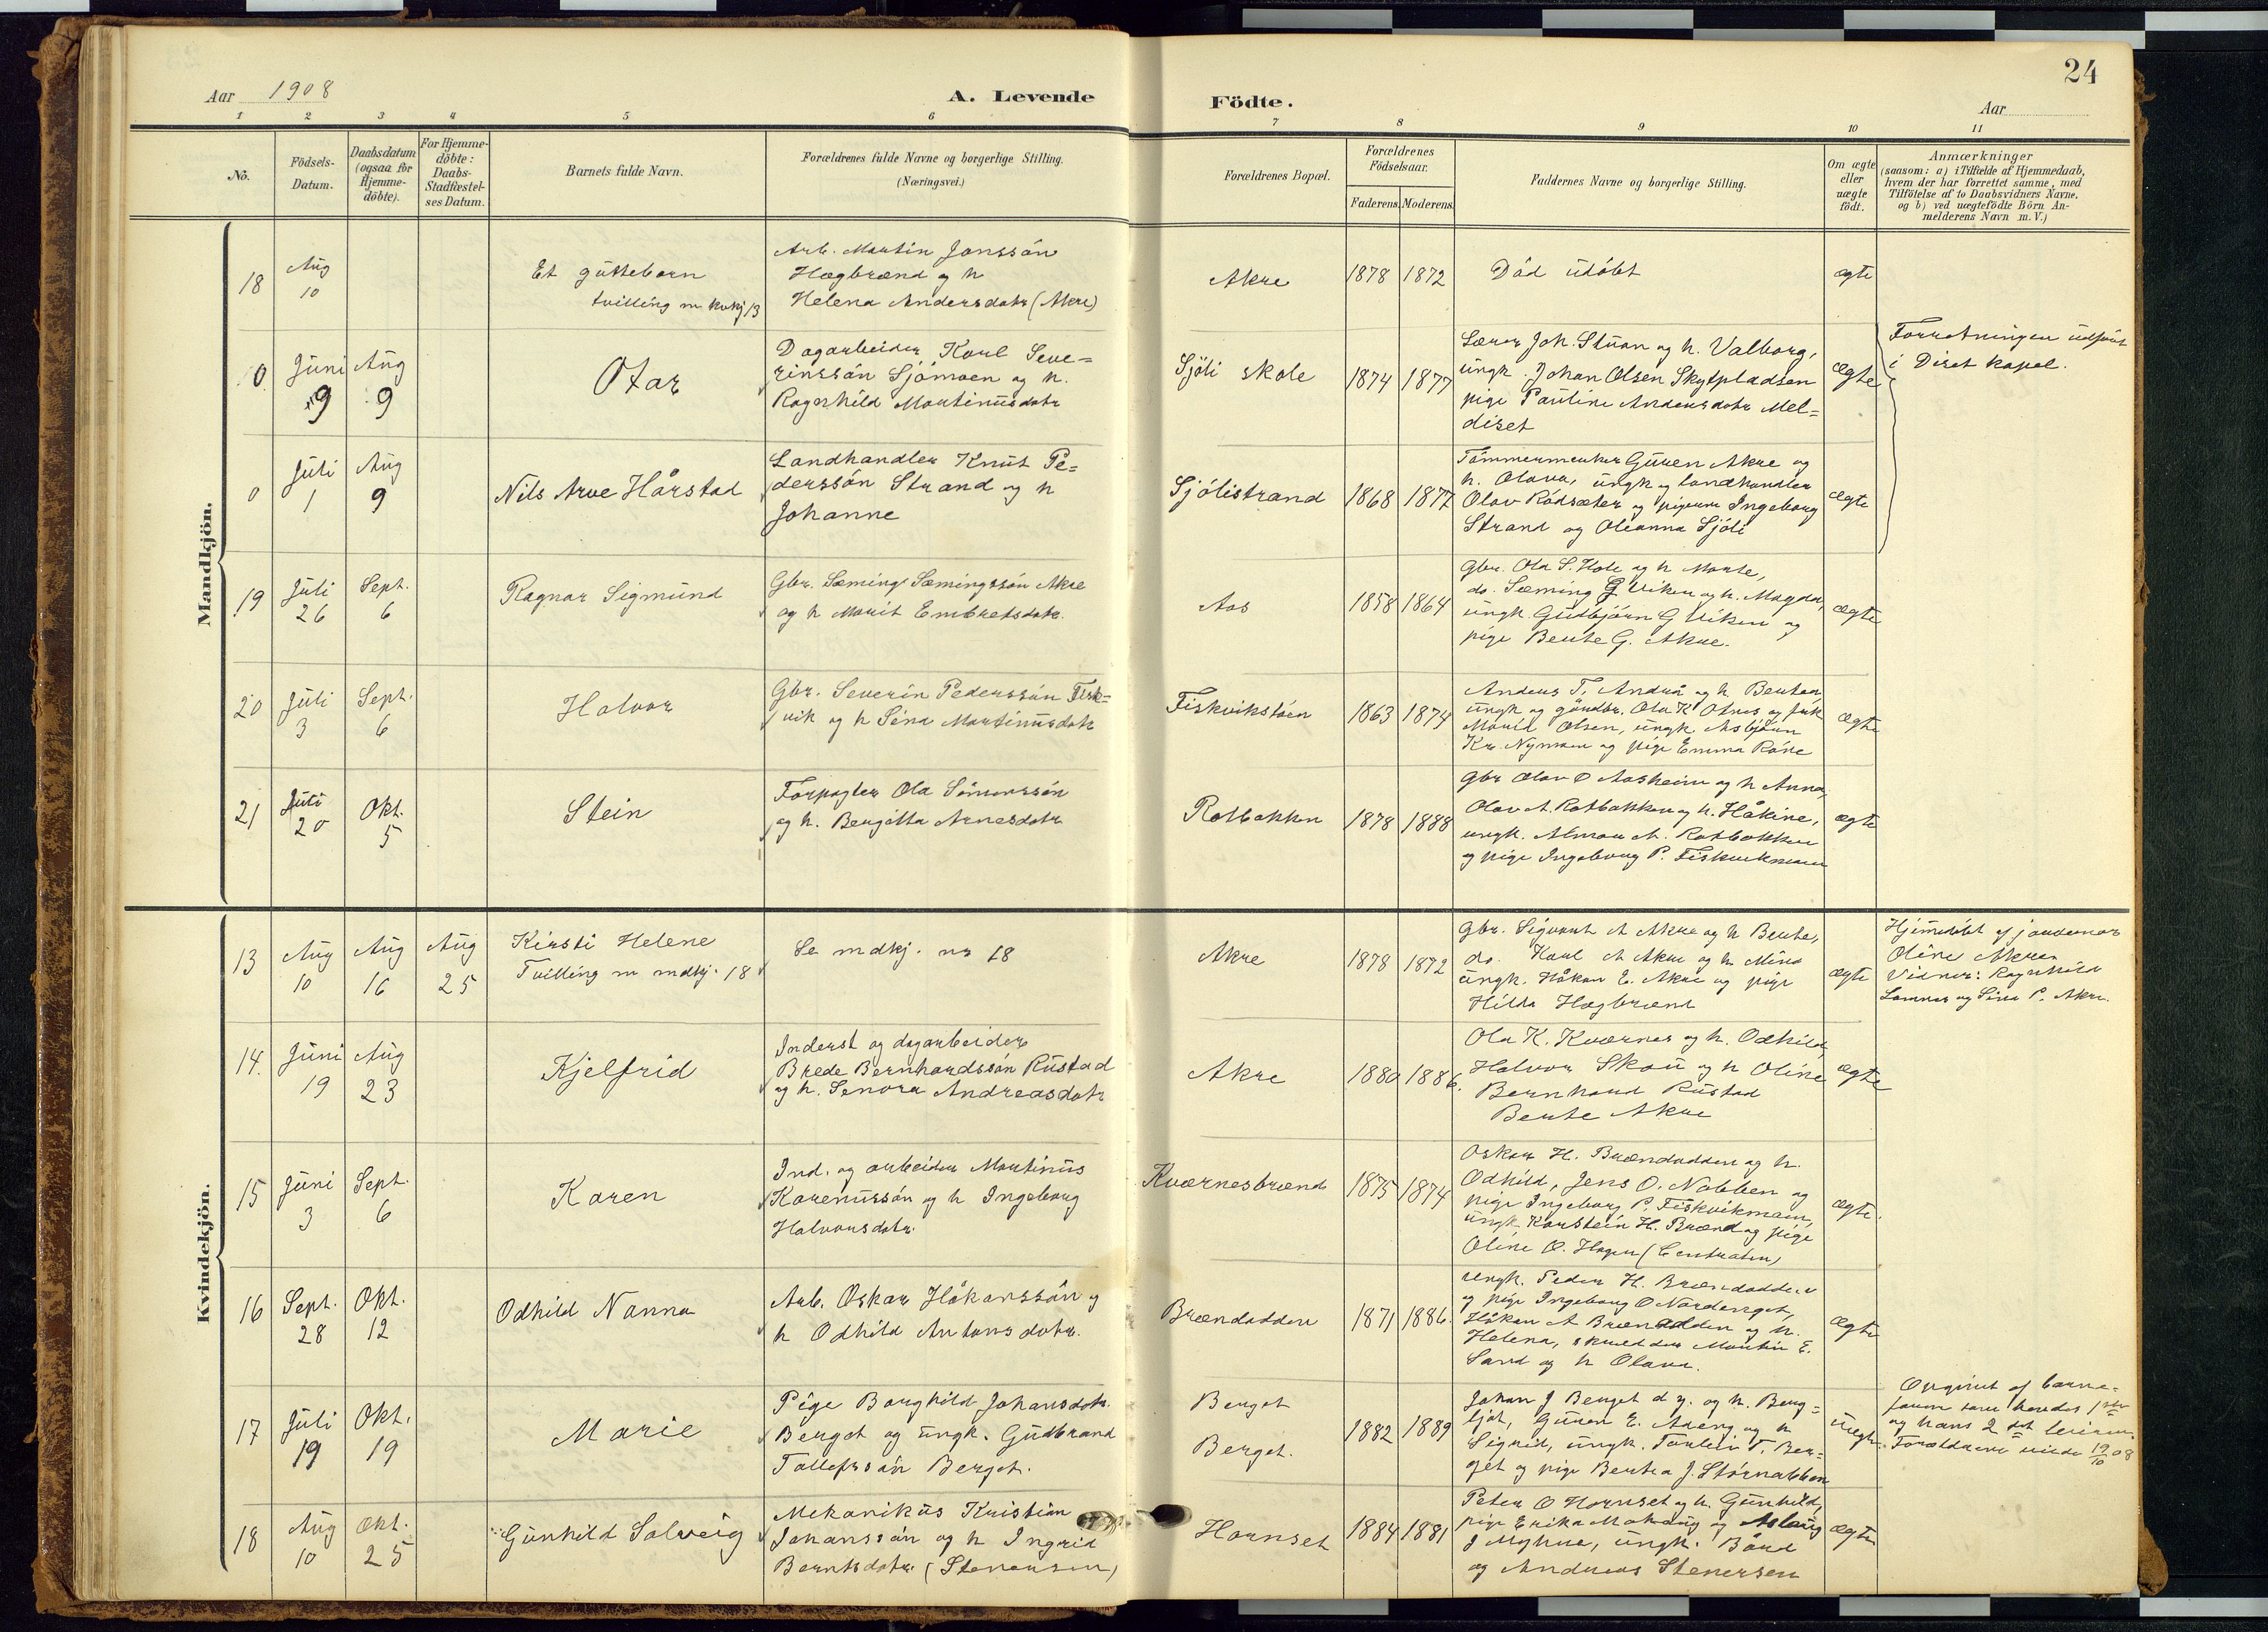 24
Aar 1908
A. Levende Födte.
Aar
1 2 3 4 5 6 7 8 9 10 11
No.
Födsels-
Datum.
Daabsdatum
(ogsaa for
Hjemme-
döbte).
For Hjemme-
döbte:
Daabs-
Stadfæstel-
ses Datum.
Barnets fulde Navn.
Forældrenes fulde Navne og borgerlige Stilling.
(Næringsvei.)
Forældrenes Bopæl.
Forældrenes
Födselsaar.
Faderens. Moderens.
Faddernes Navne og borgerlige Stilling.
Om ægte
eller
uægte
födt.
Anmærkninger
(saasom: a) i Tilfælde af Hjemmedaab,
hvem der har forrettet samme, med
Tilföielse af to Daabsvidners Navne,
og b) ved uægtefödte Börn An-
melderens Navn m. V.)
Mandkjön.
18
Aug
10
Et guttebarn
tvilling m kvkj 13
Arb. Martin Janssön
Hagbrænd og h
Helena Andersdatr (Akre)
Akre
1878 1872
Död udöbt
ægte
0
Juni
9
Aug
9
Otar
Dagarbeider Karl Seve=
rinssön Sjömoen og h.
Ragnhild Martinusdatr
Sjöli skole
1874 1877
Lærer Joh. Stuan og h. Valborg,
ungk. Johan Olsen Skytpladsen
pige Pauline Andersdatr Mel=
diset
ægte
Forretningen udfört
i Diset kapel.
0
Juli
1
Aug
9
Nils Arve Hårstad
Landhandler Knut Pe=
derssön Strand og h
Johanne
Sjölistrand
1868 1877
Tömmermerker Guren Akre og
h. Olava, ungk og landhandler
Olav Rödsæter og pigerne Ingeborg
Strand og Oleanna Sjöli
ægte
19
Juli
26
Sept.
6
Ragnar Sigmund
Gbr. Sæming Sæmingssön Akre
og h Marit Embretsdatr.
Aas
1858 1864
Gbr. Ola S. Hole og h Marte,
do. Sæming G Viken og h. Magda,
ungk. Gudbjörn G Viken og
pige Bente G. Akre.
ægte
20
Juli
3
Sept.
6
Halvor
Gbr. Severin Pederssön Fisk=
vik og h Sina Martinusdatr
Fiskvikstöen
1863 1874
Anders T. Andrå og h. Bertea,
ungk og gårdbr. Ola K Otnes og frk
Marid Olsen, ungk Asbjörn
Kr. Nymoen og pige Emma Röne
ægte
21
Juli
20
Okt.
5
Stein
Forpagter Ola Simenssön
og h. Bergitta Arnesdatr
Rotbakken
1878 1888
Gbr Olav O Aasheim og h Anna,
Olav A. Rotbakken og h. Håkine,
ungk. Alman A. Rotbakken
og pige Ingeborg P. Fiskvikmoen
ægte
Kvindekjön.
13
Aug
10
Aug
16
Aug
25
Kirsti Helene
Tvilling m mdkj. 18
Se mdkj. nr 18
Akre
1878 1872
Gbr. Sigvart A Akre og h Bente,
do. Karl A Akre og h Mina
ungk. Håkon E. Akre og pige
Hilda Hagbrænd
ægte
Hjemmedöbt af jordemor
Oline Akre
Vidner: Ragnhild
og Sina P. Akre.
14.
Juni
19
Aug
23
Kjelfrid
Inderst og dagarbeider
Brede Bernhardssön Rustad
og h. Senora Andreasdatr
Akre
1880 1886.
Ola K. Kværnes og h. Odhild,
Halvor Skou og h Oline
Bernhard Rustad
Bente Akre
ægte
15
Juni
3
Sept.
6
Karen
Ind. og arbeider Martinus
Karenussön og h Ingeborg
Halvorsdatr.
Kværnesbrænd
1875 1874
Oskar H. Brændadden og h.
Odhild, Jens O. Nabben og
pige Ingeborg P. Fiskvikmoen,
ungk Karstein H. Brænd og pige
Oline O. Hagen (Centralen)
ægte.
16
Sept.
28
Okt.
12
Odhild Nanna
Arb. Oskar Håkanssön og
h Odhild Antonsdatr.
Brændadden
1871 1886.
ungk. Peder H. Brændadden
og pige Ingeborg O Nordenget,
Håkon A Brændadden og h.
Helena, skrædder Martin E.
Sand og h Olava.
ægte
17
Juli
19
Okt.
19
Marie
Pige Borghild Johansdatr.
Berget og ungk. Gudbrand
Tollefssön Berget.
Berget
Berget.
1882 1889
Johan J Berget d y. og h. Berg=
ljot, Guren E. Aaeng og h
Sigrid, ungk. Torleiv T. Ber=
get og pige Bertea J. Störnabben
uægte.
Opgivet af barne-
faren som hendes 1ste
og hans 2det leiermål.
Forældrene viede 19/10 08
18
Aug
10
Okt.
25
Gunhild Solveig
Mekanikus Kristian
Johanssön og h Ingrid
Berntsdatr. (Stenersen)
Hornset
1884 1881
Peter O Hornset og h. Gunhild,
pige Erika og Aslaug
J Myhre, ungk. Bård
og Andreas Stenersen
ægte